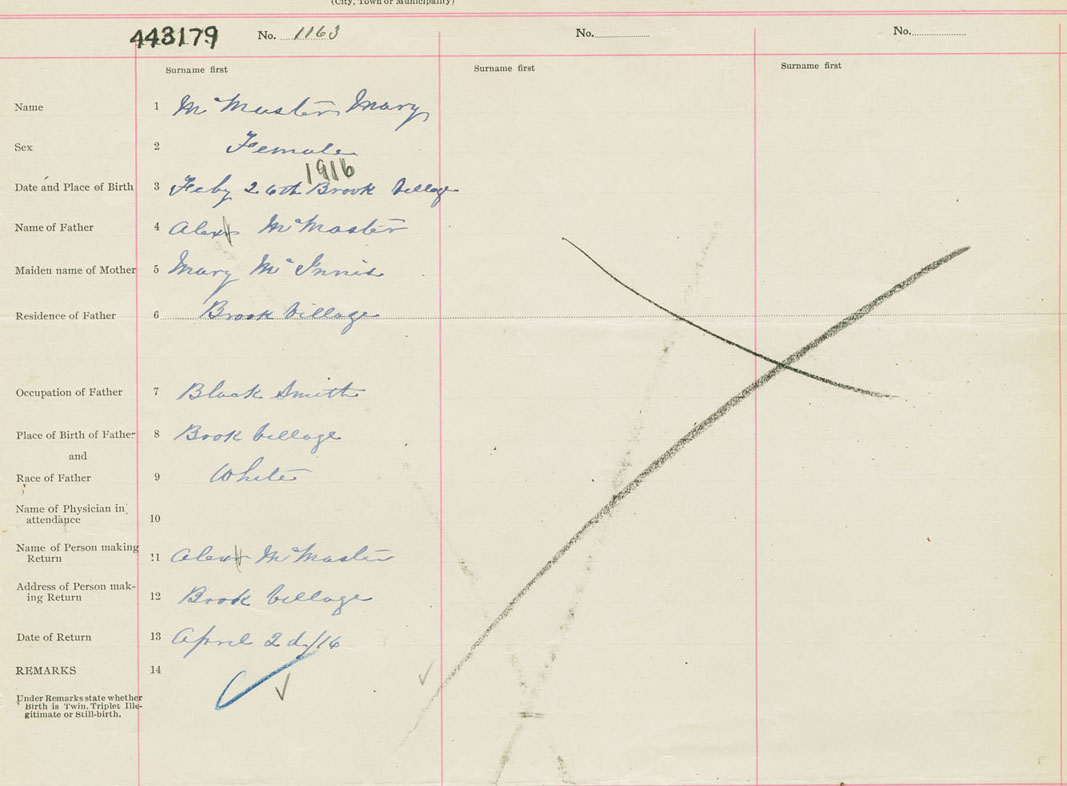 (City, Town or Municipality)
443179 No. 1163 No. No.
Surname first Surname first Surname first
Name 1 Mc Master Mary
Sex 2 Female
1916
Date and Place of Birth 3 Feby 26th Brook Village
Name of Father 4 Alex McMaster
Maiden name of Mother 5 Mary McInnis
Residence of Father 6 Brook Village
Occupation of Father 7 Black Smith
Place of Birth of Father 8 Book Village
and
Race of Father 9 White
Name of Physician in
attendance 10
Name of Person making
Return 11 Alex McMaster
Address of Person mak-
ing Return 12 Brook Village
Date of Return 13 April 2d/16
REMARKS 14
Under Remarks state whether
Birth is Twin. Triplet Ille-
gitimate or Still-birth.